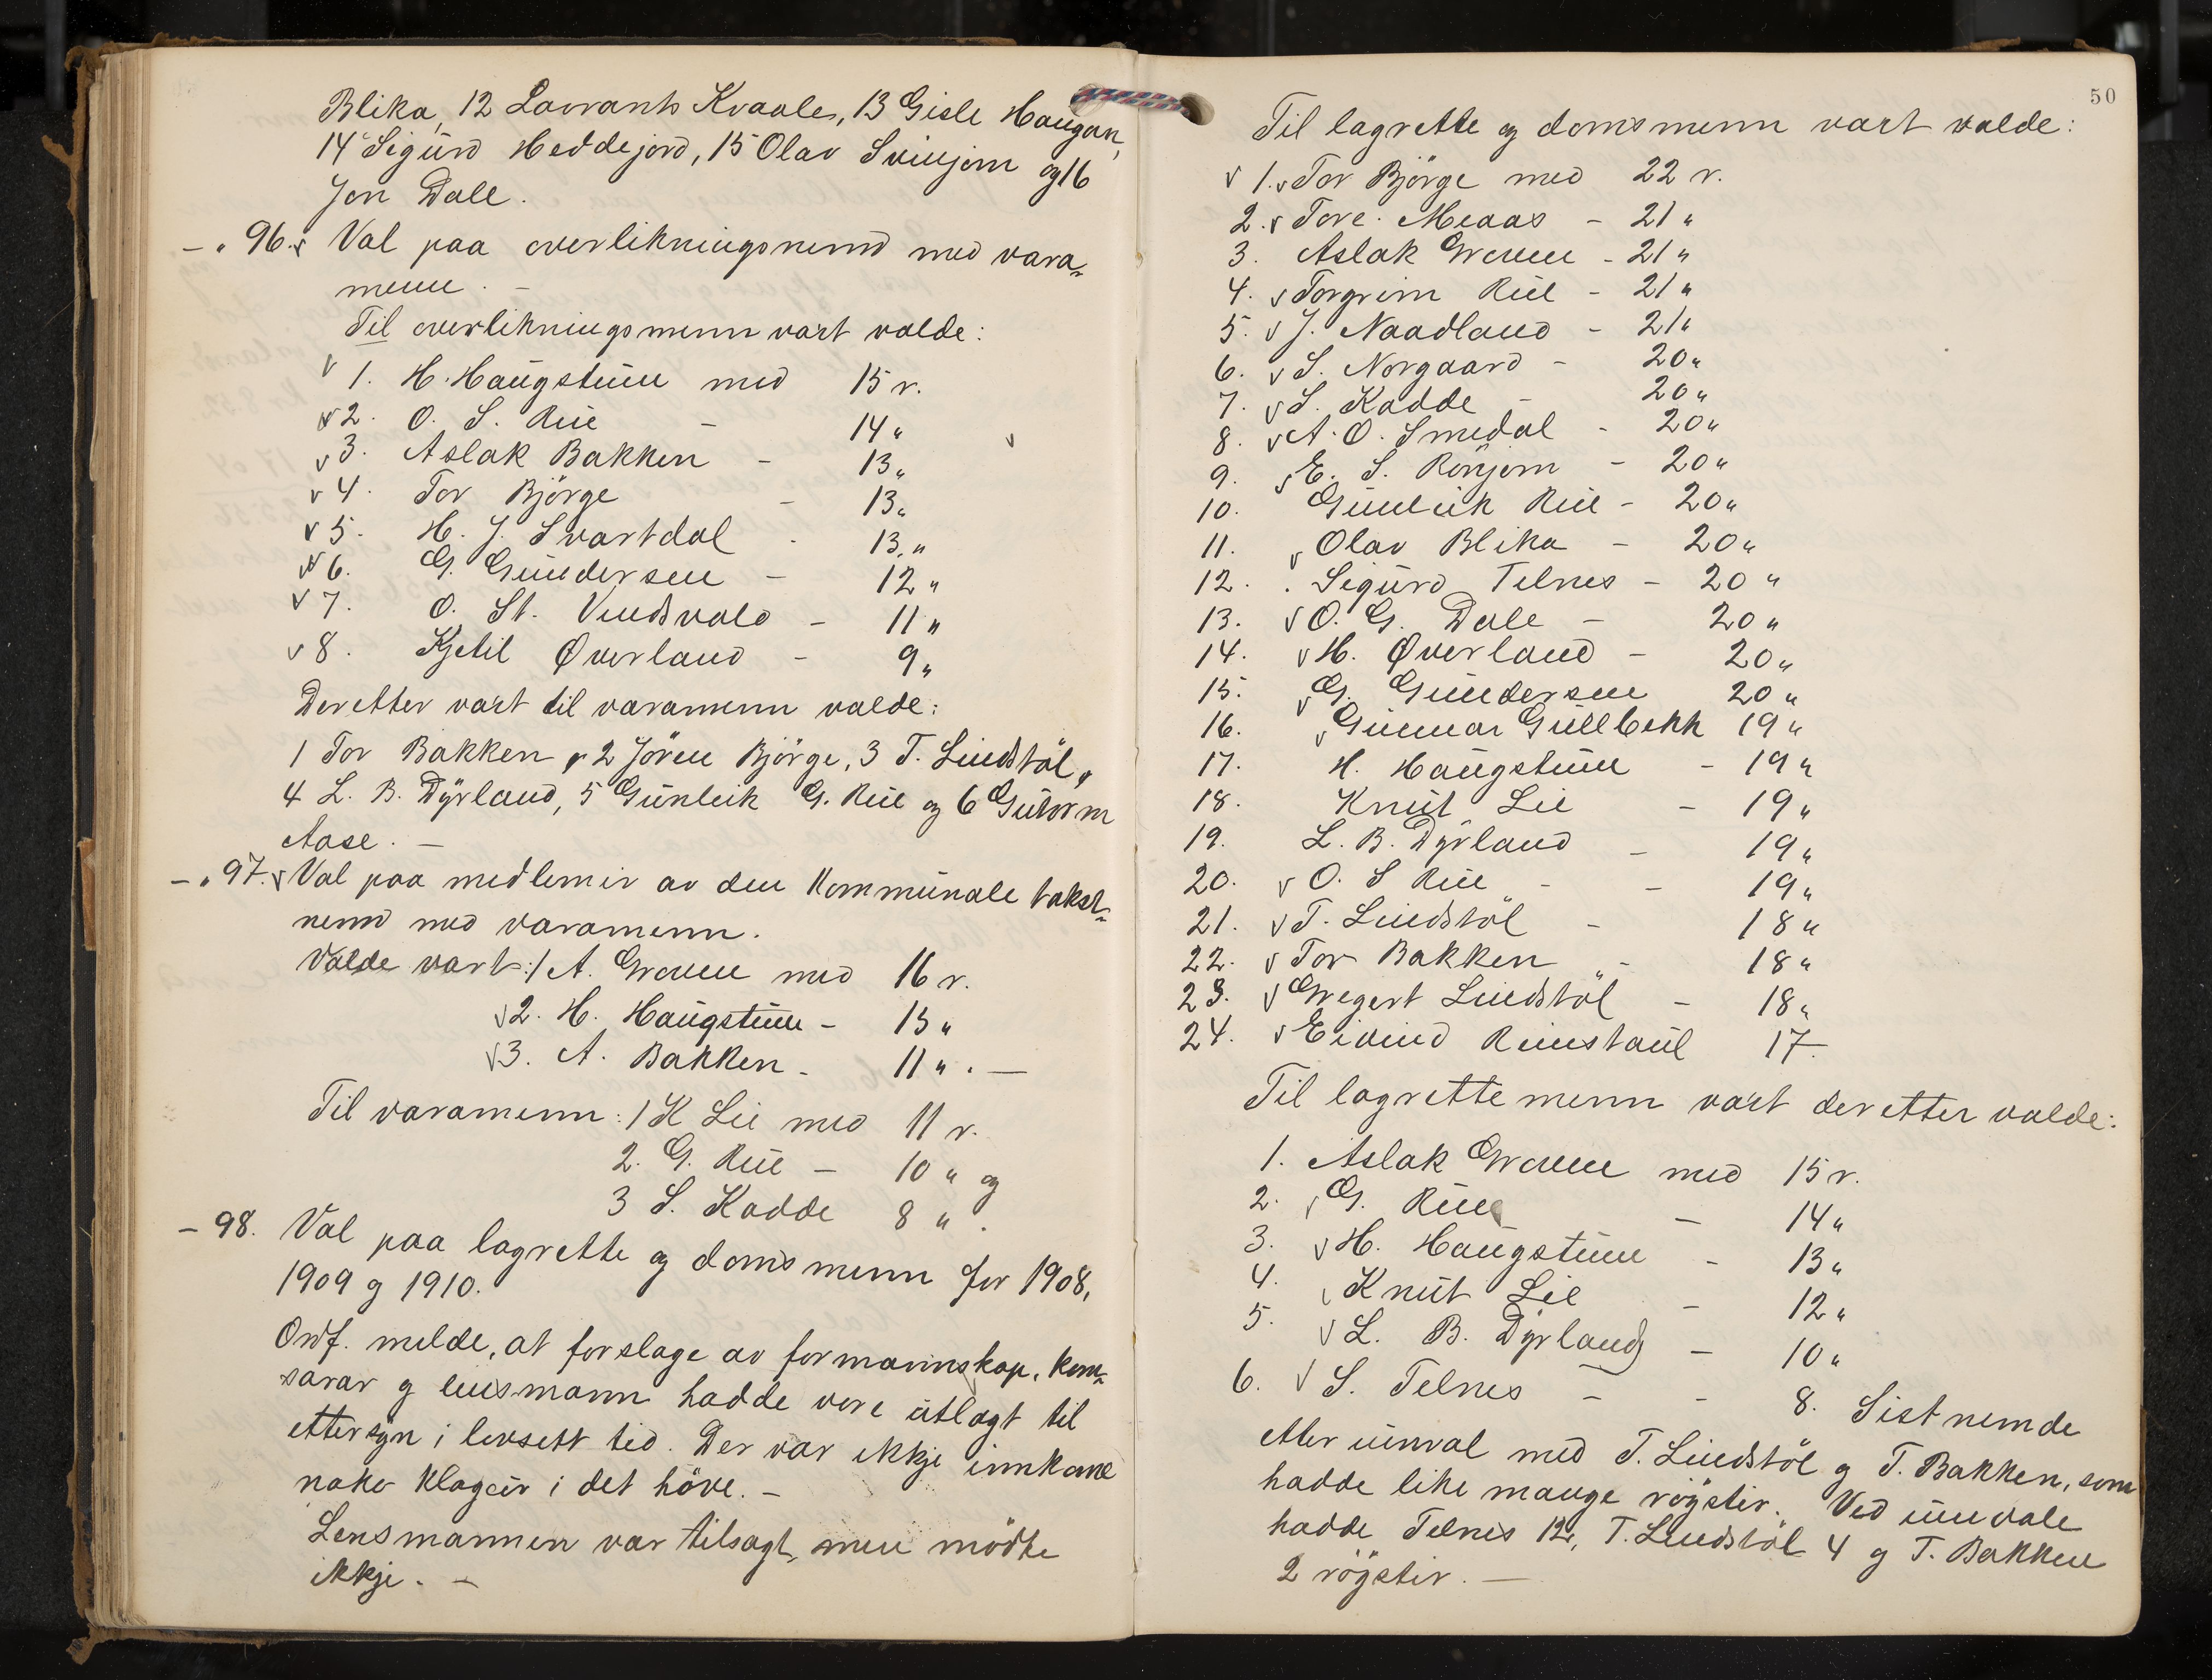 Blika, 12 Lavrants Kvaale, 13 Gisle Haugan,
14 Sigurd Heddejord, 15 Olav Svinjom og 16
Jon Dale.
- „ 96. Val paa overlikningsnemd med vara-
menn. -
Til overlikningsmenn vart valde:
1. H. Haugstuen med 15 r.
2. O. S. Rue - 14 „
3. Aslak Bakken - 13 „
4. Tor Björge - 13 „
5. H. J. Svartdal - 13 „
6. G. Gundersen - 12 „
7. O. St. Vindsvald - 11 „
8. Kjetil Øverland - 9 „
Deretter vart til varamenn valde:
1 Tor Bakken, 2 Jören Björge, 3 T. Lindstöl,
4 L. B. Dyrland, 5 Gunleik G. Rue og 6 Gutorm
Aase. -
- „ 97. Val paa medlemir av den Kommunale takst-
nemd med varamenn.
Valde vart: 1 A. Graven med 16 r.
2. H. Haugstuen - 15 „
3. A. Bakken - 11 „ . -
Til varamenn: 1 K Lie med 11 r.
2. G. Rue - 10 „ og
3 S. Kadde 8 „ .
- 98. Val paa lagrette og domsmenn for 1908,
1909 og 1910.
Ordf. melde, at forslage av formannskap, kom-
sarar og lensmann hadde vore utlagt til
ettersyn i lovsett tid. Der var ikkje innkome
noko klagur i det höve. -
Lensmannen var tilsagt, men mödte
ikkje. -
50
Til lagrette og domsmenn vart valde:
1. Tor Björge med 22 r.
2. Tore Meaas - 21 „
3. Aslak Graven - 21 „
4. Torgrim Rue - 21 „
5. J. Naadland - 21 „
6. S. Norgaard - 20 „
7. S. Kadde - 20 „
8. A. O. Smedal - 20 „
9. E. S. Rönjom - 20 „
10. Gunleik Rue - 20 „
11. Olav Blika - 20 „
12. Sigurd Telnes - 20 „
13. O. G. Dale - 20 „
14. H. Øverland - 20 „
15. G. Gundersen 20 „
16. Gunnar Gullbekk 19 „
17. H. Haugstuen - 19 „
18. Knut Lie - 19 „
19. L. B. Dyrland - 19 „
20. O. S Rue - - 19 „
21. T. Lindstöl - 18 „
22. Tor Bakken - 18 „
23. Gregert Lindstöl - 18 „
24. Eivind Runstaul 17.
Til lagrettemenn vart deretter valde:
1. Aslak Graven med 15 r.
2. G. Rue - 14 „
3. H. Haugstuen - 13 „
4. Knut Lie - 12 „
5. L. B. Dyrland - 10 „
6. S. Telnes - - 8. Sistnemde
etter umval med T. Lindstöl og T. Bakken, som
hadde like mange röystir. Ved umvale
hadde Telnes 12, T. Lindstöl 4 og T. Bakken
2 röystir. -